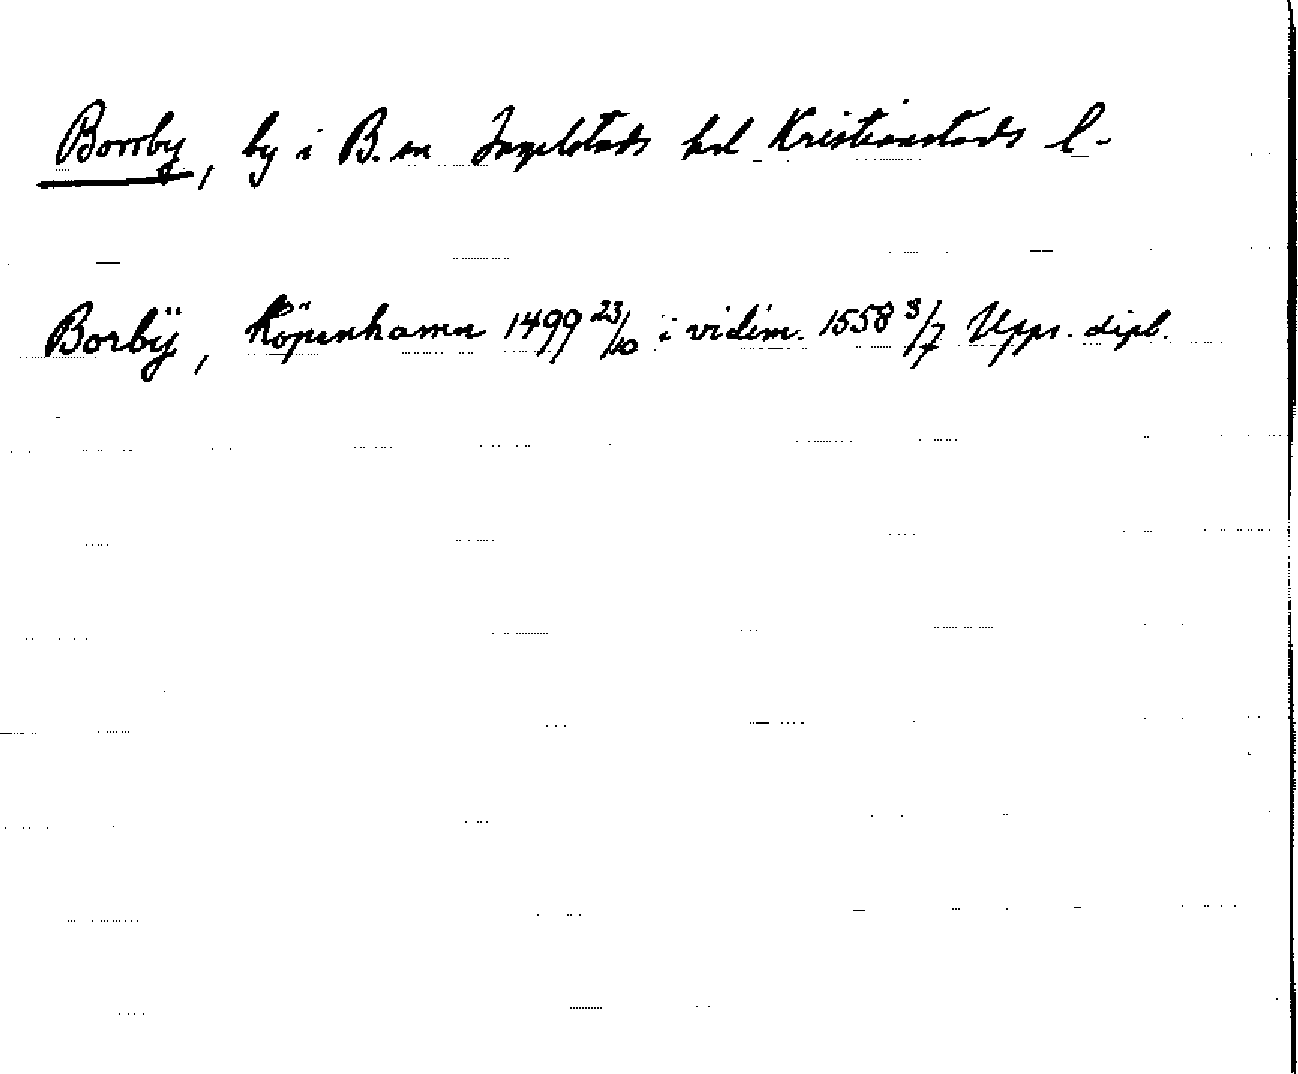 Borrby, by i B. sn Ingelstads hd Kristianstads l.
Borbÿ, Köpenhamn 1499 23/10 i vidim. 1558 8/7 Upps. dipl.